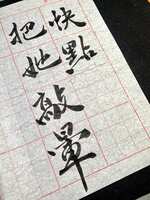 快點
把她
敲暈